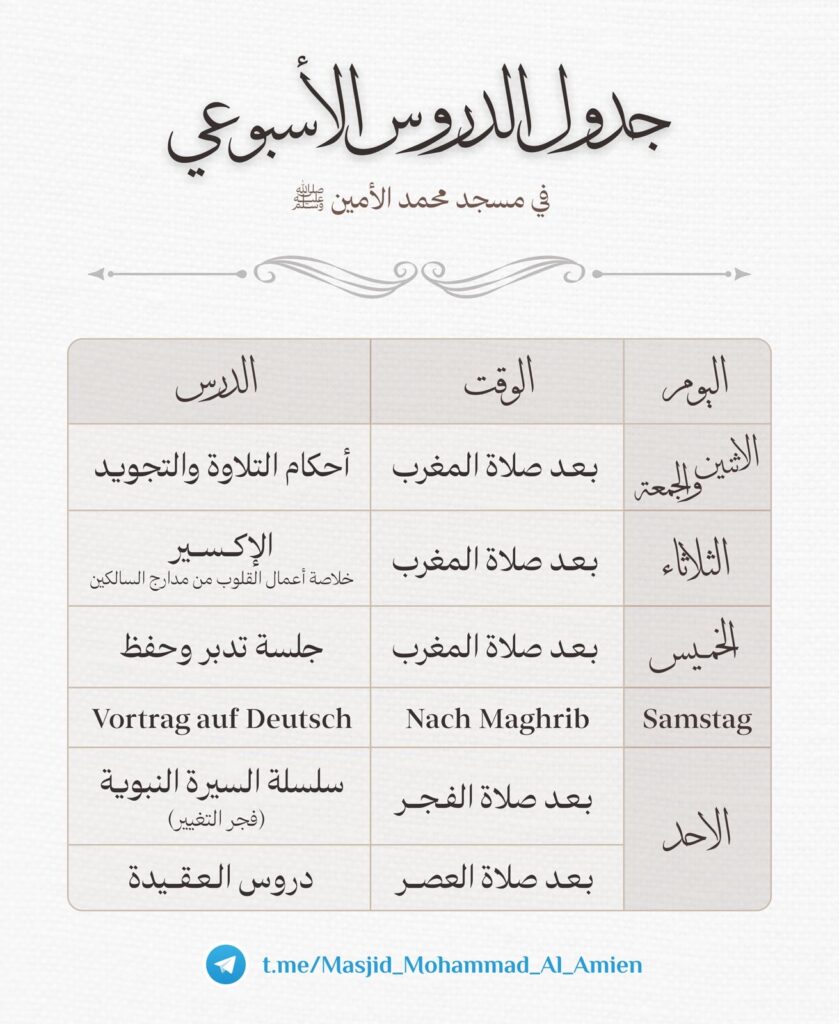 جدول الدروس الأسبوعي
في مسجد محمد الأمين ﷺ
اليوم الوقت الدرس
الاثنين والجمعة بعد صلاة المغرب أحكام التلاوة والتجويد
الثلاثاء بعد صلاة المغرب الإكسير
خلاصة أعمال القلوب من مدارج السالكين
الخميس بعد صلاة المغرب جلسة تدبر وحفظ
Vortrag auf Deutsch Nach Maghrib Samstag
الاحد بعد صلاة الفجر سلسلة السيرة النبوية
(فجر التغيير)
بعد صلاة العصر دروس العقيدة
t.me/Masjid_Mohammad_Al_Amien